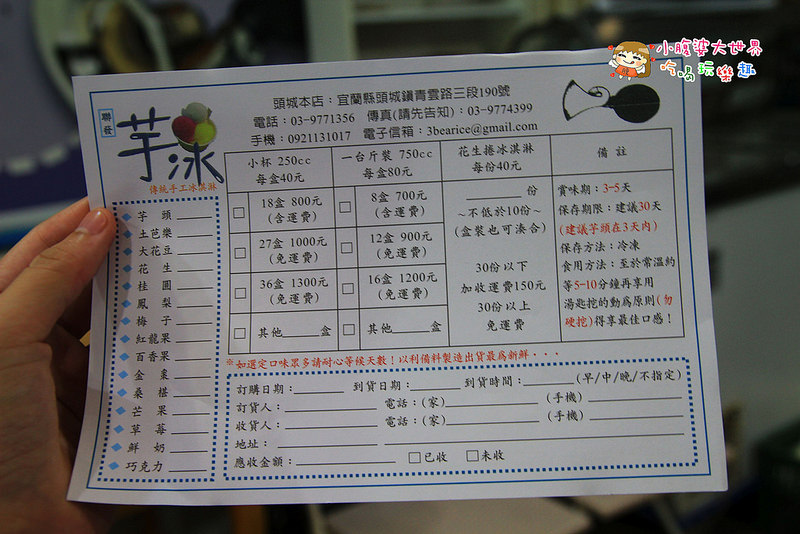 小腹婆大世界
吃喝玩樂趣
聯發
芋冰
傳統手工冰淇淋
頭城本店：宜蘭縣頭城鎮青雲路三段190號
電話：03-9771356 傳真(請先告知)：03-9774399
手機：0921131017 電子信箱：3bearice@gmail.com
芋頭
土芭樂
大花豆
花生
桂圓
鳳梨
梅子
紅龍果
百香果
金棗
桑椹
芒果
草莓
鮮奶
巧克力
小杯 250cc
每盒40元
一台斤裝 750cc
每盒80元
花生捲冰淇淋
每份40元
備註
18盒 800元
(含運費)
8盒 700元
(含運費)
27盒 1000元
(免運費)
12盒 900元
(免運費)
36盒 1300元
(免運費)
16盒 1200元
(免運費)
其他____盒
其他____盒
________份
~不低於10份~
(盒裝也可湊合)
30份以下
加收運費150元
30份以上
免運費
賞味期：3-5天
保存期限：建議30天
(建議芋頭在3天內)
保存方法：冷凍
食用方法：至於常溫約
等5-10分鐘再享用
湯匙挖的動為原則(勿
硬挖)得享最佳口感！
※如選定口味眾多請耐心等候天數！以利備料製造出貨最為新鮮．．．
訂購日期：______ 到貨日期：______ 到貨時間：______(早/中/晚/不指定)
訂貨人：____________ 電話：(家)____________ (手機)____________
收貨人：____________ 電話：(家)____________ (手機)____________
地址：____________
應收金額：____________ □已收 □未收